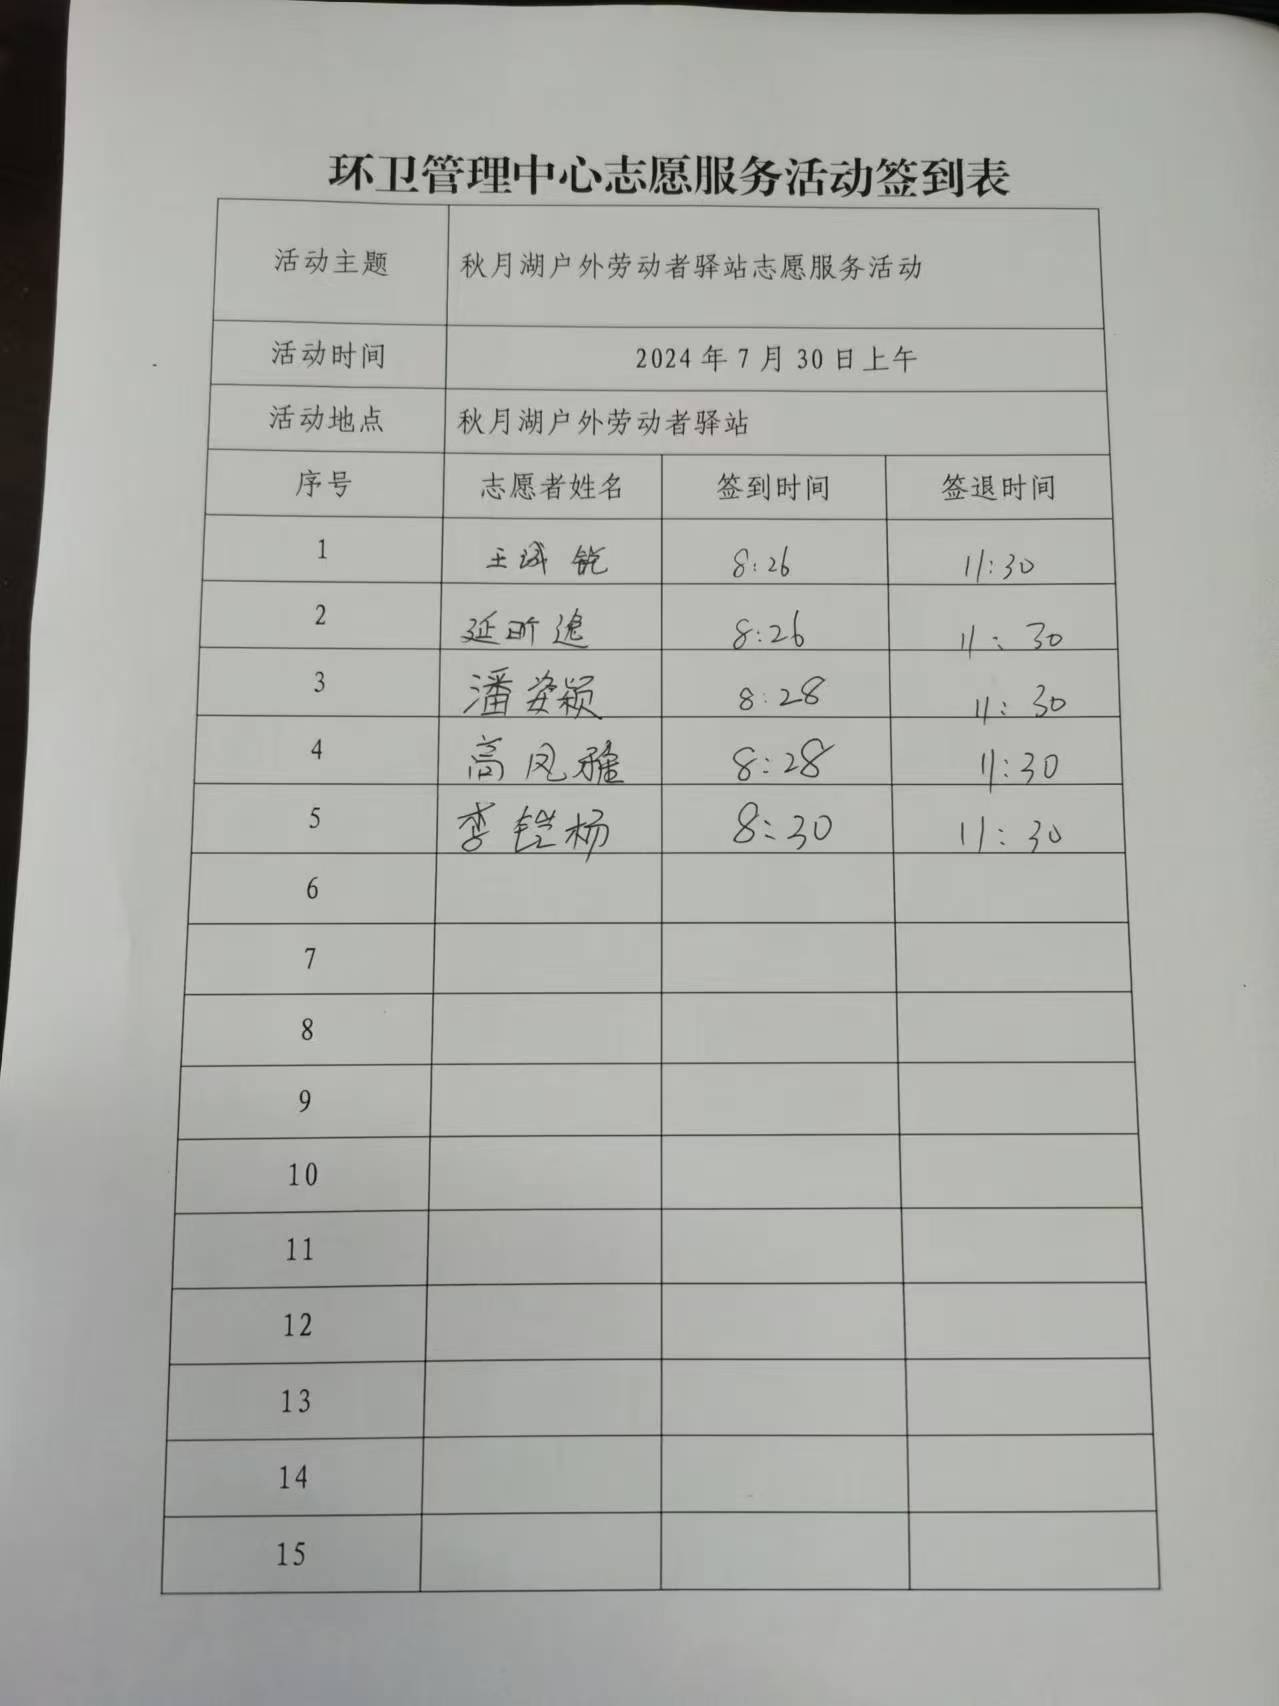 环卫管理中心志愿服务活动签到表
活动主题 秋月湖户外劳动者驿站志愿服务活动
活动时间 2024年7月30日上午
活动地点 秋月湖户外劳动者驿站
序号 志愿者姓名 签到时间 签退时间
1 8:26 11:30
2 8:26 11:30
3 潘姿颖 8:28 11:30
4 高风雅 8:28 11:30
5 李铠杨 8:30 11:30
6
7
8
9
10
11
12
13
14
15